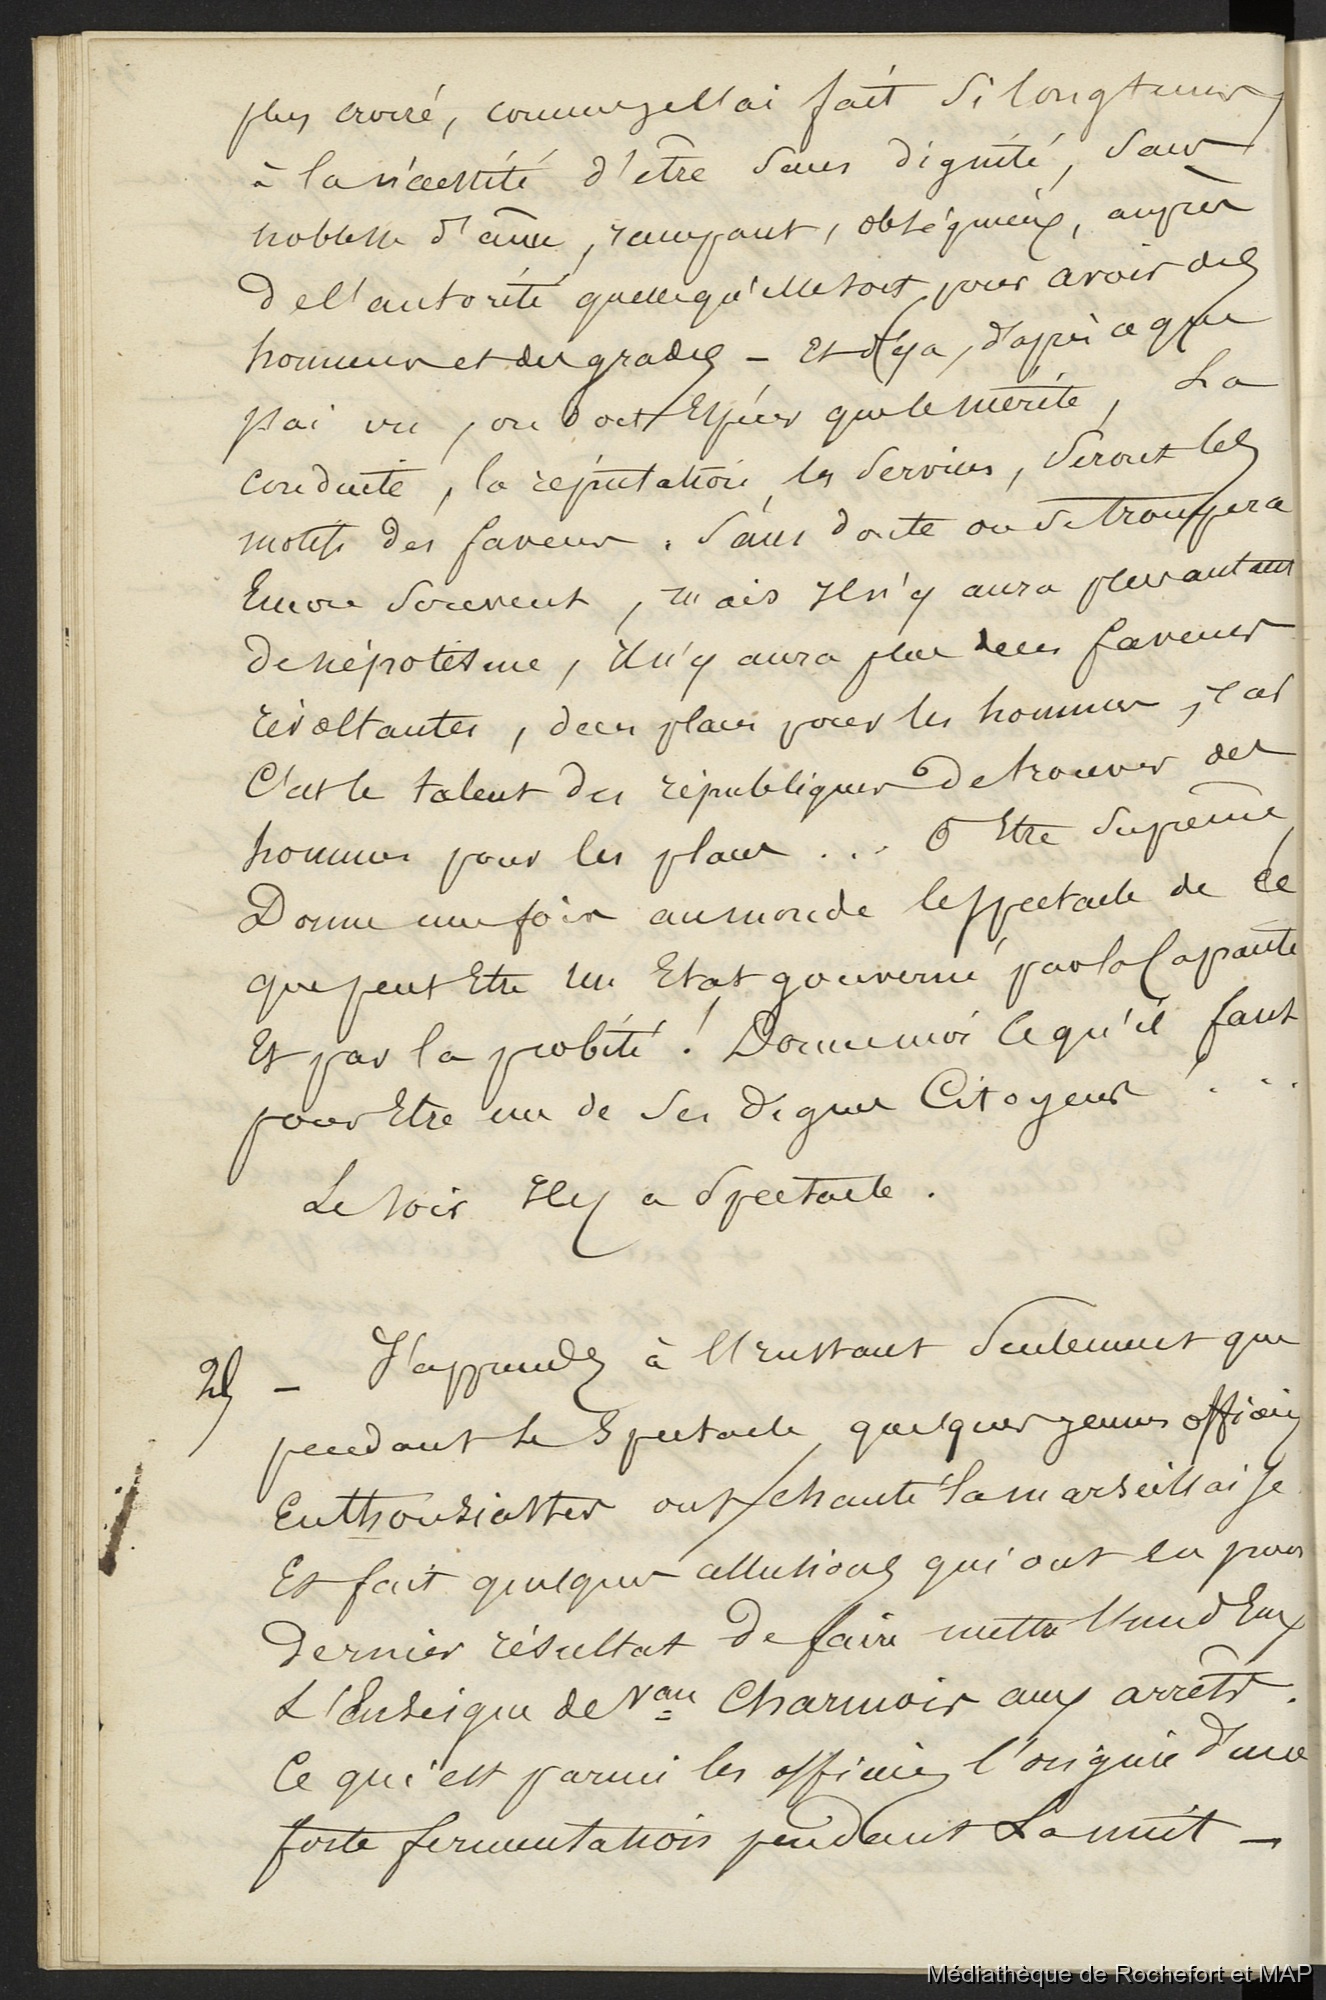 plus croire, comme je l'ai fait si longtems
à la nécessité d'être sans dignité, sans
noblesse d'âme, rampant, obséquieux, auprès
de l'autorité quelle qu'elle soit pour avoir des
honneurs et des grades - Et déja, d'après ce que
j'ai vu, on doit Espérer que le mérite, La
conduite, la réputation, les services, seront les
motifs des faveurs. Sans doute on se trompera
Encore souvent, mais Il n'y aura plus autant
de népotisme, il n'y aura plus de ces faveurs
révoltantes, de ces places pour les hommes, car
C'est le talent des républiques de trouver des
hommes pour les places ... ô Etre Suprême,
Donne une fois au monde le spectacle de ce
que peut Etre Un Etat gouverné par la Capacité
Et par la probité ! Donne moi ce qu'il faut
pour Etre un de ses dignes Citoyens ! ...
Le soir Il y a Spectacle.
- J'apprends à l'Instant seulement que
pendant le Spectacle, quelques jeunes officiers
Enthousiastes ont chanté la marseillaise
Et fait quelques allusions qui ont eu pour
dernier résultat de faire mettre l'un d'Eux
L'Enseigne de Vau Charmois aux arrêts.
Ce qui est parmi les officiers l'origine d'une
forte fermentation pendant La nuit -
Médiathèque de Rochefort et MAP